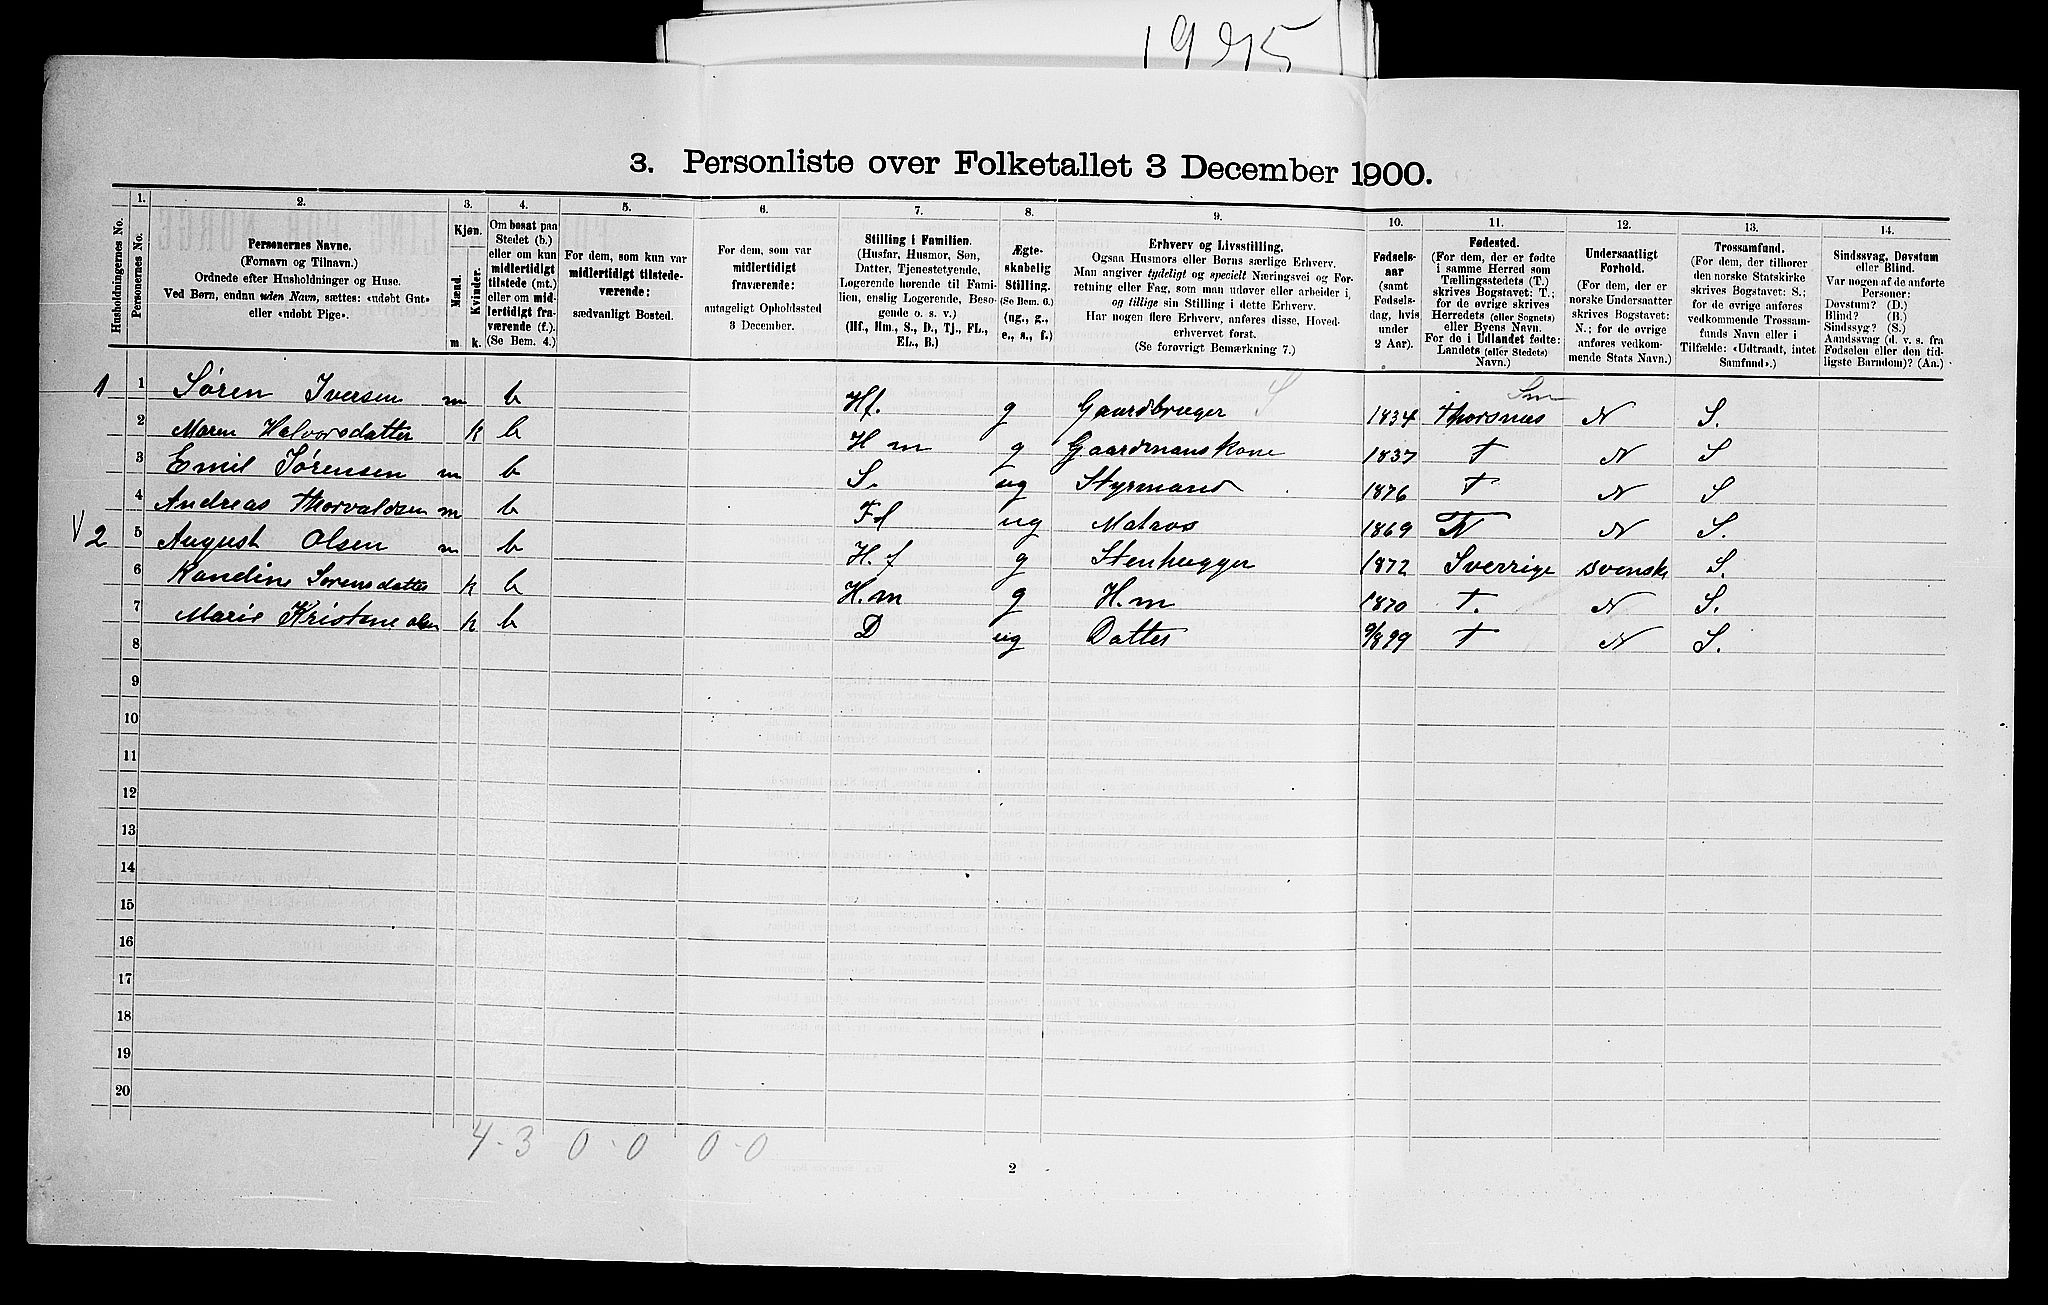 1995
3. Personliste over Folketallet 3 December 1900.
Husholdningernes No.
1.
Personernes No.
2.
Personernes Navne.
(Fornavn og Tilnavn.)
Ordnede efter Husholdninger og Huse.
Ved Børn, endnu uden Navn, sættes: «udøbt Gut»
eller «udøbt Pige».
3.
Kjøn.
Mænd.
Kvinder.
m. k.
4.
Om bosat paa
Stedet (b.)
eller om kun
midlertidigt
tilstede (mt.)
eller om mid-
lertidigt fra-
værende (f.).
(Se Bem. 4.)
5.
For dem, som kun var
midlertidigt tilstede-
værende:
sædvanligt Bosted.
6.
For dem, som var
midlertidigt
fraværende:
antageligt Opholdssted
3 December.
7.
Stilling i Familien.
(Husfar, Husmor, Søn,
Datter, Tjenestetyende,
Logerende hørende til Fami-
lien, enslig Logerende, Besø-
gende o. s. v.)
(Hf., Hm., S., D., Tj., FL.,
EL., B.)
8.
Ægte-
skabelig
Stilling.
(Se Bem. 6.)
(ug., g.,
e., s., f.)
9.
Erhverv og Livsstilling.
Ogsaa Husmors eller Børns særlige Erhverv.
Man angiver tydeligt og specielt Næringsvei og For-
retning eller Fag, som man udøver eller arbeider i,
og tillige sin Stilling i dette Erhverv.
Har nogen flere Erhverv, anføres disse, Hoved-
erhvervet først.
(Se forøvrigt Bemærkning 7.)
10.
Fødsels-
aar
(samt
Fødsels-
dag, hvis
under
2 Aar).
11.
Fødested.
(For dem, der er fødte
i samme Herred som
Tællingsstedets (T.)
skrives Bogstavet: T.;
for de øvrige skrives
Herredets (eller Sognets)
eller Byens Navn.
For de i Udlandet fødte:
Landets (eller Stedets)
Navn.)
12.
Undersaatligt
Forhold.
(For dem, der er
norske Undersaatter
skrives Bogstavet:
N.; for de øvrige
anføres vedkom-
mende Stats Navn.)
13.
Trossamfund.
(For dem, der tilhører
den norske Statskirke
skrives Bogstavet: S.;
for de øvrige anføres
vedkommende Trossam-
funds Navn eller i
Tilfælde: «Udtraadt, intet
Samfund».)
14.
Sindssvag, Døvstum
eller Blind.
Var nogen af de anførte
Personer:
Døvstum? (D.)
Blind? (B.)
Sindssyg? (S.)
Aandssvag (d. v. s. fra
Fødselen eller den tid-
ligste Barndom)? (Aa.)
1 1 Søren Iversen m b Hf. g Gaardbruger S 1834 Thorsnæs N S.
2 Maren Halvorsdatter k b Hm g Gaardmanskone 1837 T N S
3 Emil Sørensen m b S. ug Styrmand 1876 T N S
4 Andreas Thorvaldsen m b Fl ug Matros 1869 N S.
V 2 5 August Olsen m b H.f g Stenhugger 1872 Sverrige svensk S.
6 Kandine Sørensdatter k b H.m g H.m 1870 T. N S.
7 Marie Kristine olsen k b D ug Datter 9/8 99 T N S.
8
9
10
11
12
13
14
15
16
17
18
19
20
4-3 0-0 0-0
2